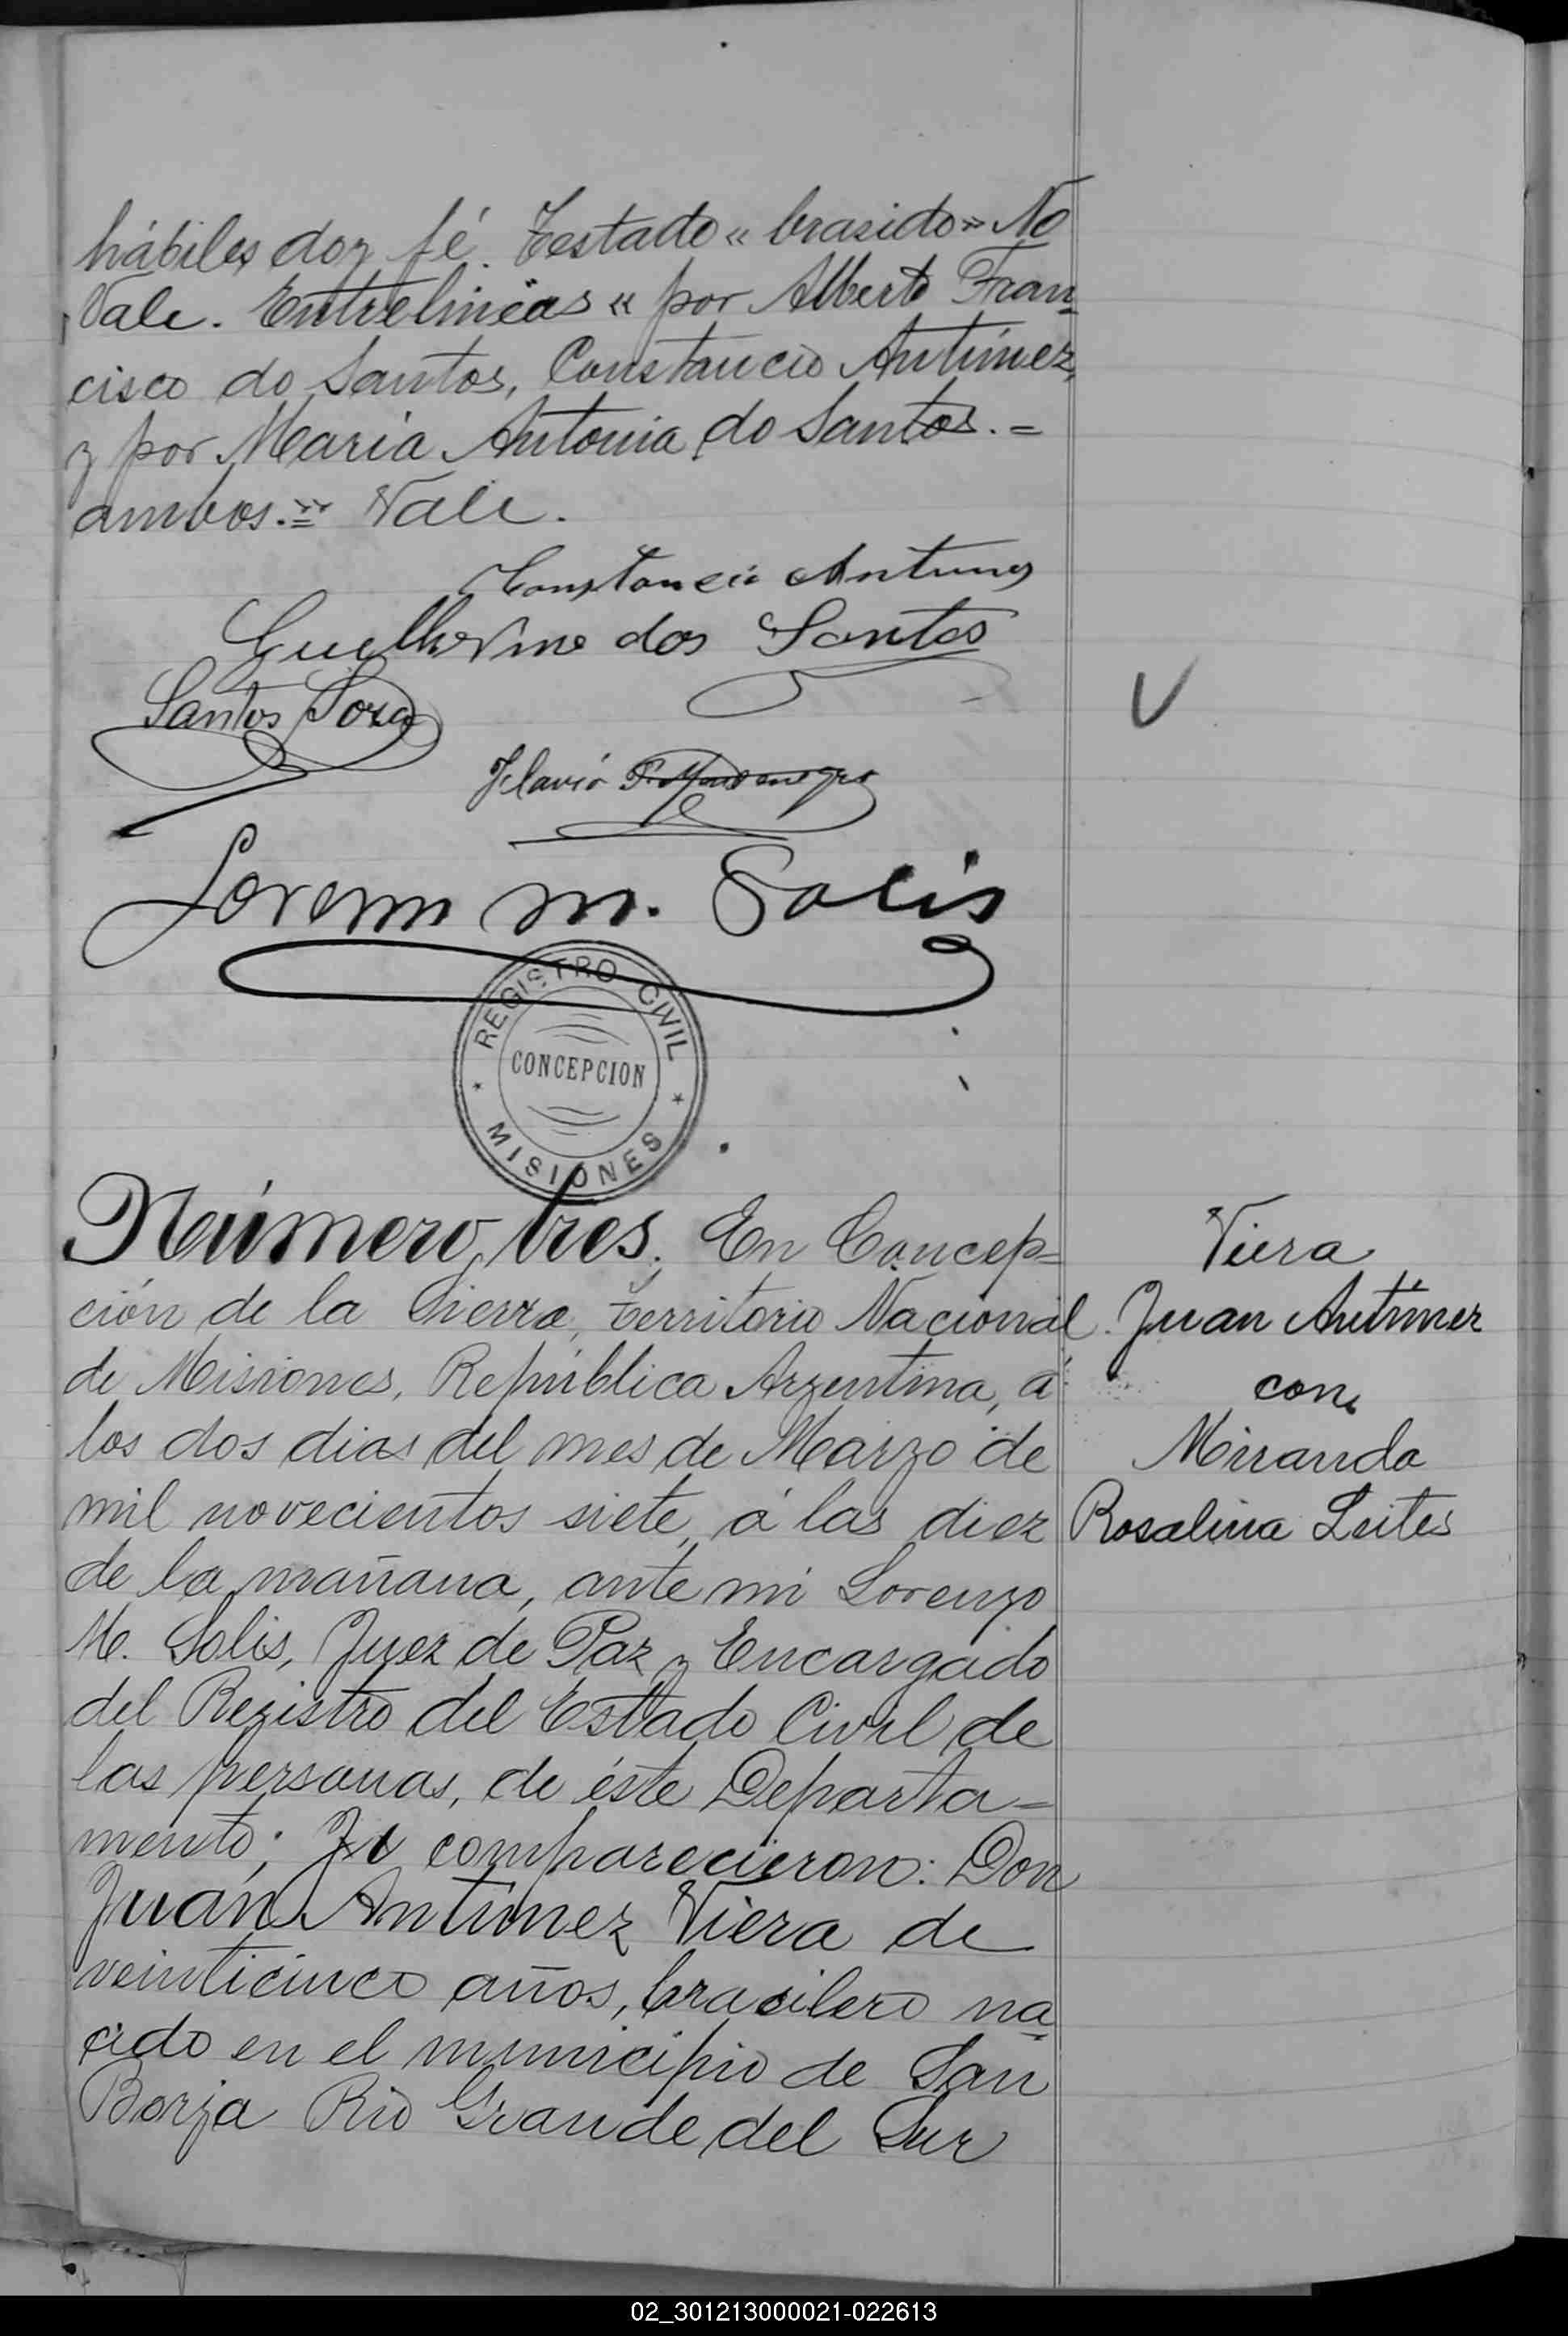 hábiles doy fé. Testado « brasido » No
Vale. Entrelineas « por Alberto Fran-
cisco do Santos, Constancio Antúnez,
y por Maria Antonia do Santos. =
ambos. =» Vale.
Constancio Antunes
Guilherme dos Santos
Santos Soza
Flavio
Lorenzo M. Solis
REGISTRO CIVIL
CONCEPCION
MISIONES
Número tres. En Concep=
ción de la Sierra, territorio Nacional
de Misiones, República Argentina, á
los dos dias del mes de Marzo de
mil novecientos siete, á las diez
de la mañana, ante mi Lorenzo
M. Solis, Juez de Paz y Encargado
del Registro del Estado Civil de
las personas, de éste Departa-
mento; comparecieron: Don
Juan Antúnez Viera de
veinticinco años, brasilero na-
cido en el municipio de San
Borja Rio Grande del Sur
Viera
Juan Antúnez
con
Miranda
Rosalina Leites
02_301213000021-022613